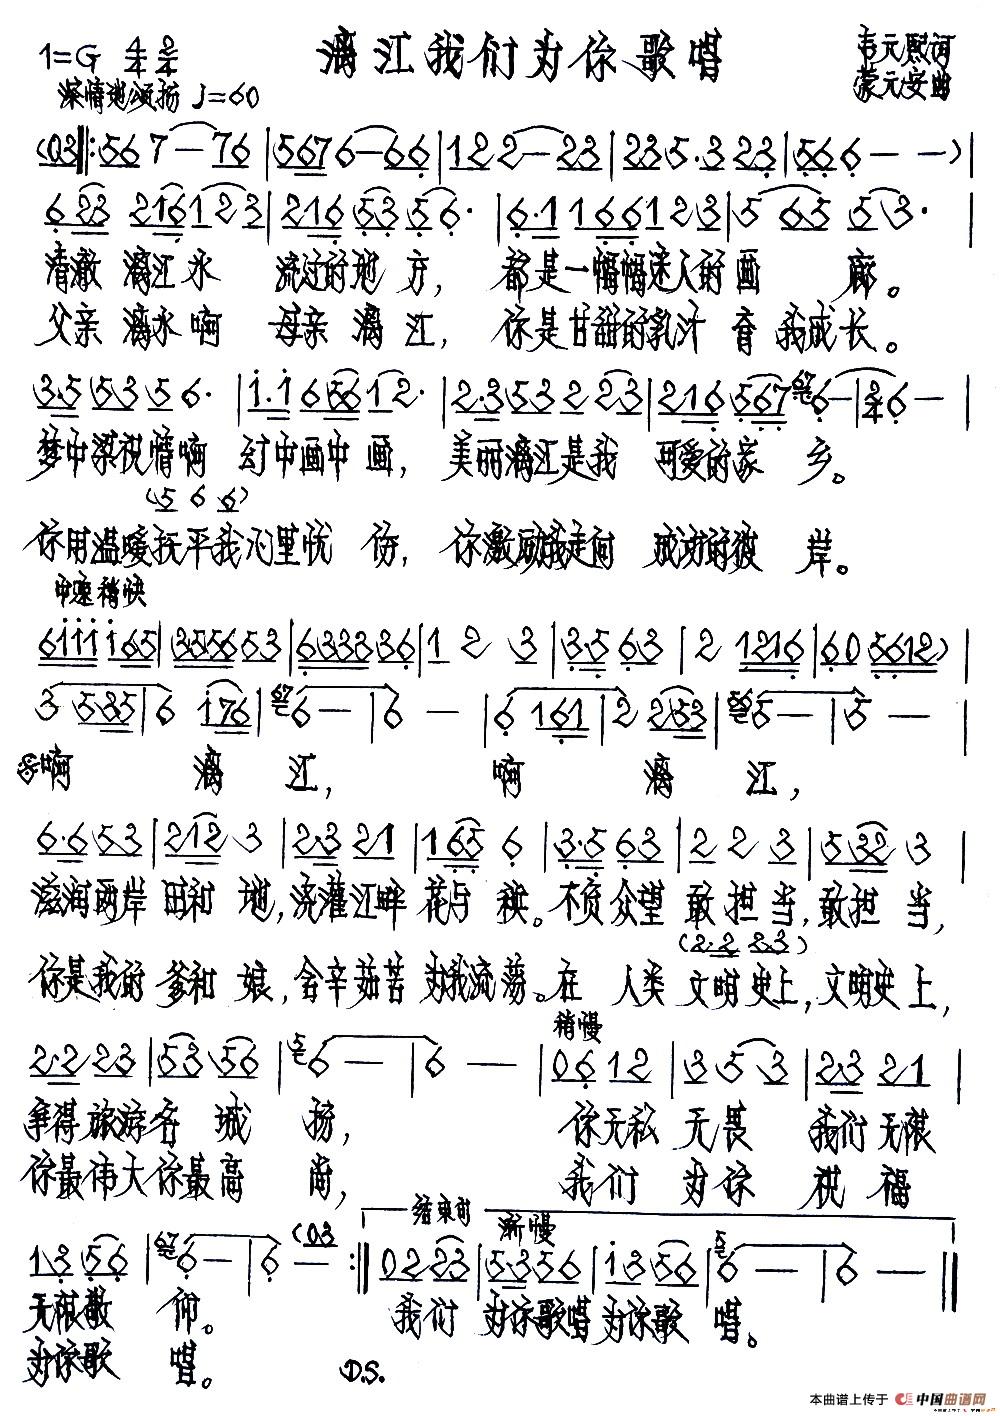 漓江我们为你歌唱
1=G 4/4 2/4
韦元熙词
蒙元安曲
深情地颂扬 ♩=60
(03‖:567—76|5676—66|122—23|235·323|566——)|
623 2161 23|216 53 56·|6·1 1661 23|5 65 53·|
清澈漓江水 流过的地方, 都是一幅幅迷人的画廊。
父亲漓水啊 母亲漓江, 你是甘甜的乳汁育我成长。
3·5 53 56·|1·16 5612·|2·3 53 2 23|216 567 67 6—|2/4 6—|
梦中深祝情啊 幻中画中画, 美丽漓江是我 可爱的家乡。
(5 6 6)
你用温暖抚平我心里忧伤, 你激励我走向 成功的彼岸。
中速稍快
6111 165|3556 53|6333 36|1 2 3|3·5 63|2 1216|60 5612)|
3 535|6 176|67 6—|6—|6 161|2 253|56 5—|5—|
啊 漓江, 啊 漓江,
6·6 53|212 3|2·3 21|165 6|3·5 63|2 2 3|5 32 3|
滋润两岸田和地,浇灌江畔花与秧。不负众望敢担当,敢担当,
(2·2 23)
你是我的爹和娘,含辛茹苦为我流荡。在 人类文明史上,文明史上,
稍慢
2·2 23|53 56|5 6—|6—|06 12|3 5 3|2·3 21|
争得旅游名城扬, 你无私无畏 我们无限
你最伟大你最高尚, 我们为你祝福
结束句 渐慢
13 56|67 6—|6—(03:‖02 23|5·3 56|1·3 56|5 6—|6—‖
无限敬仰。 我们为你歌唱为你歌唱。
为你歌唱。 D.S.
本曲谱上传于 中国曲谱网